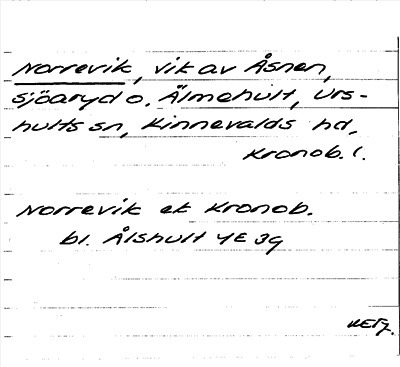 Norrevik, vik av Åsnen,
Sjöaryd o. Älmehult, Urs-
hults sn, Kinnevalds hd,
Kronob. l.
Norrevik ek Kronob.
bl. Ålshult 4E 3g